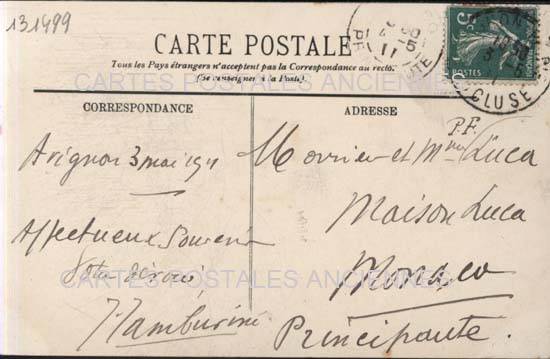 131499
CARTE POSTALE
Tous les Pays étrangers n'acceptent pas la Correspondance au recto.
(Se renseigner à la Poste).
CARTES POSTALES ANCIENNES
CORRESPONDANCE
ADRESSE
Avignon 3 mai 1911
Affectueux Souvenir
Votre dévoué
Tamburini
P.F.
Monsieur et Mme Luca
Maison Luca
Monaco
Principauté.
CARTES POSTALES ANCIENNES
5c
POSTES
CLUSE
11